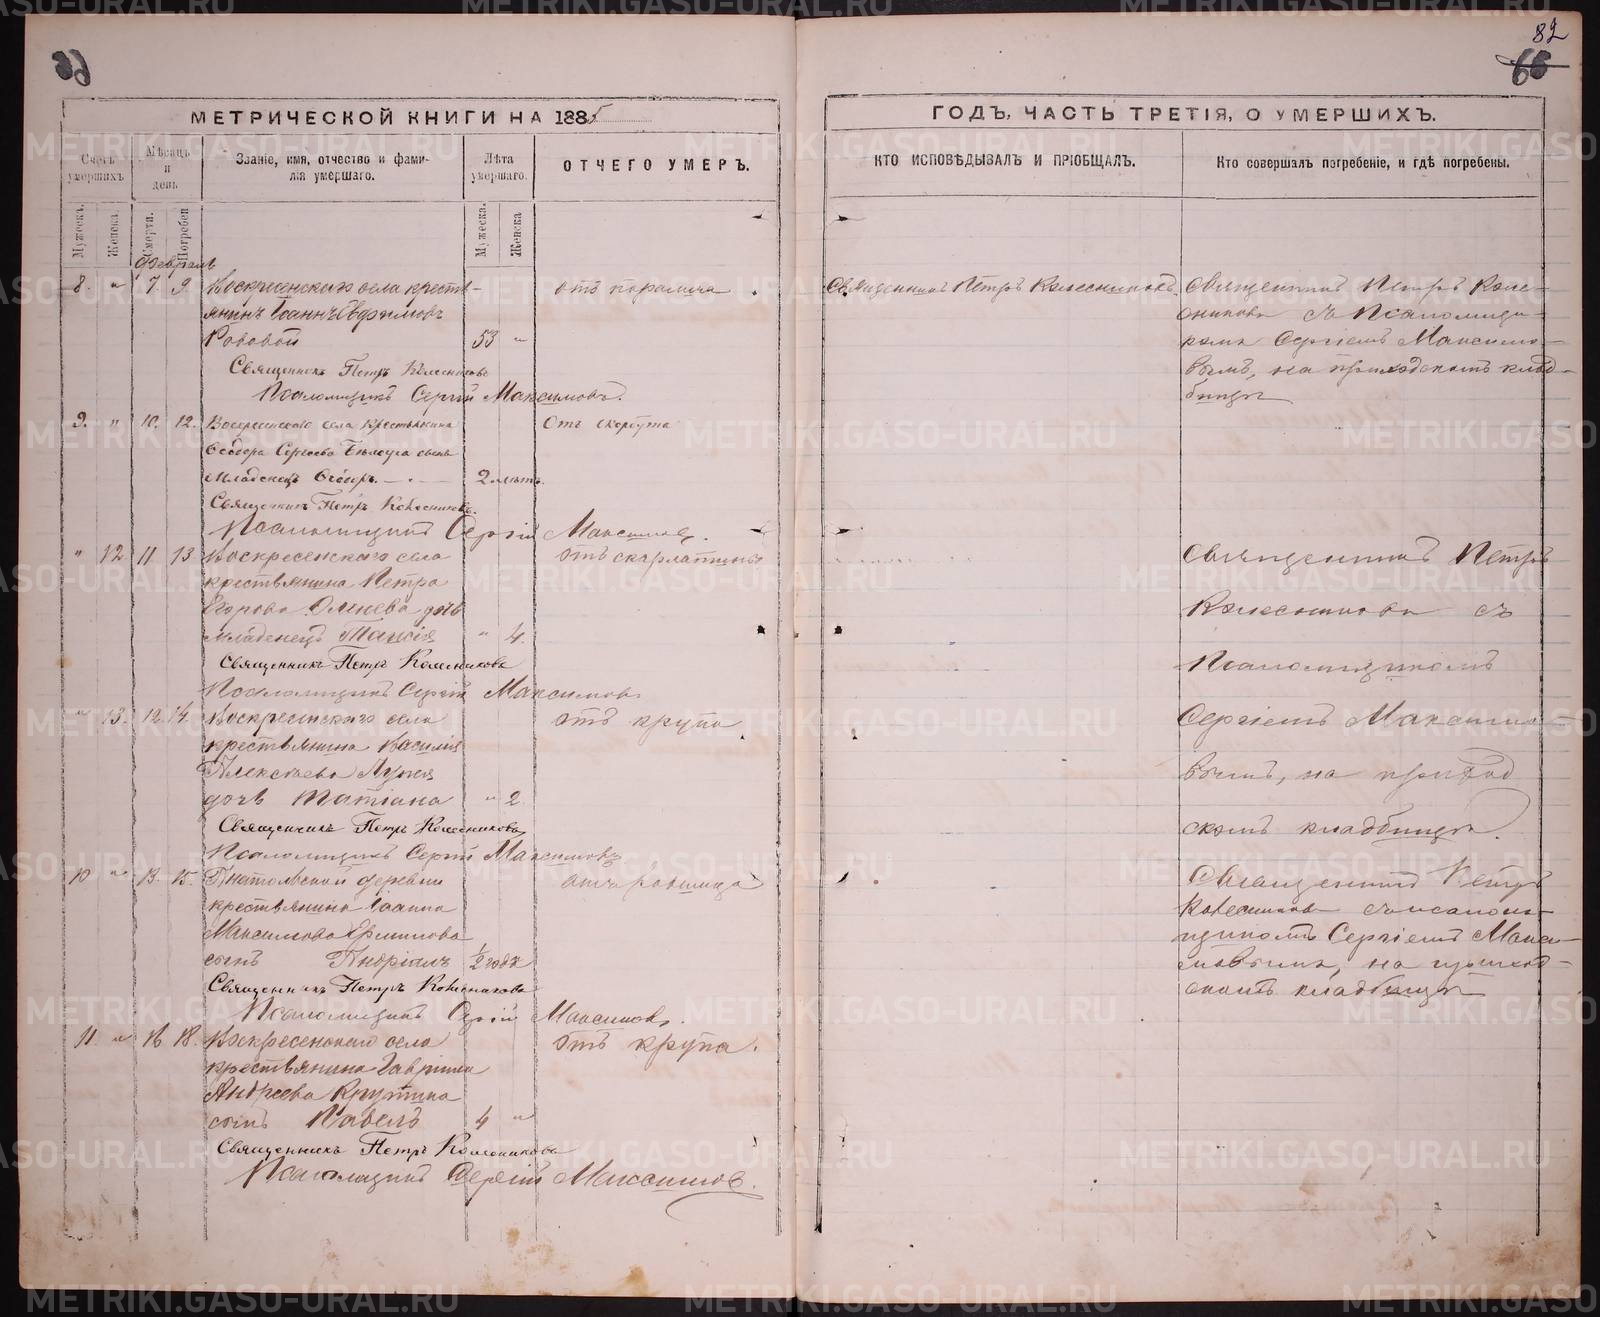 82
66
МЕТРИЧЕСКОЙ КНИГИ НА 1885
ГОДЪ, ЧАСТЬ ТРЕТІЯ, О УМЕРШИХЪ.
Счетъ умершихъ.
Мѣсяцъ и день.
Званіе, имя, отчество и фами-
лія умершаго.
Лѣта умершаго.
ОТЧЕГО УМЕРЪ.
КТО ИСПОВѢДЫВАЛЪ И ПРІОБЩАЛЪ.
Кто совершалъ погребеніе, и гдѣ погребены.
Мужеска.
Женска.
Смерти.
Погребен
Мужеска.
Женска
Февраль
8. " 7. 9. Воскресенскаго села кресть-
янинъ Іоаннъ Евфимовъ
53 "
отъ
Священникъ Петръ Колесниковъ
Псаломщикъ Сергій Максимовъ.
Священникъ Петръ Колесниковъ
Священникъ Петръ Коле-
сниковъ съ Псаломщи-
комъ Сергіемъ Максимо-
вымъ, на приходскомъ клад-
бищѣ
9. " 10. 12. Воскресенскаго села крестьянина
Ѳеодора Сергѣева сынъ
младенецъ 2 лѣтъ.
Отъ скорбута
Священникъ Петръ Колесниковъ.
Псаломщикъ Сергій Максимовъ.
" 12 11 13 Воскресенскаго села
крестьянина Петра
Егорова дочь
младенецъ Таисія " 4.
отъ скарлатины
Священникъ Петръ Колесниковъ
Псаломщикъ Сергій Максимовъ
" 13. 12. 14. Воскресенскаго села
крестьянина Василія
Алексѣева
дочь Татіана " 2
отъ крупа
Священникъ Петръ Колесниковъ
Псаломщикъ Сергій Максимовъ
Священникъ Петръ
Колесниковъ съ
Псаломщикомъ
Сергіемъ Максимо-
вымъ, на приход
скомъ кладбищѣ.
10 " 13. 15. деревни
крестьянина Іоанна
Максимова Ермилова
сынъ 1/2 года
Священникъ Петръ Колесниковъ
Псаломщикъ Сергій Максимовъ.
Священникъ Петръ
Колесниковъ съ псалом-
щикомъ Сергіемъ Макси-
мовымъ, на приход-
скомъ кладбищѣ
11. " 16 18. Воскресенскаго села
крестьянина Гавріила
Андреева
сынъ Павелъ 4 "
отъ крупа.
Священникъ Петръ Колесниковъ
Псаломщикъ Сергій Максимовъ.
METRIKI.GASO-URAL.RU